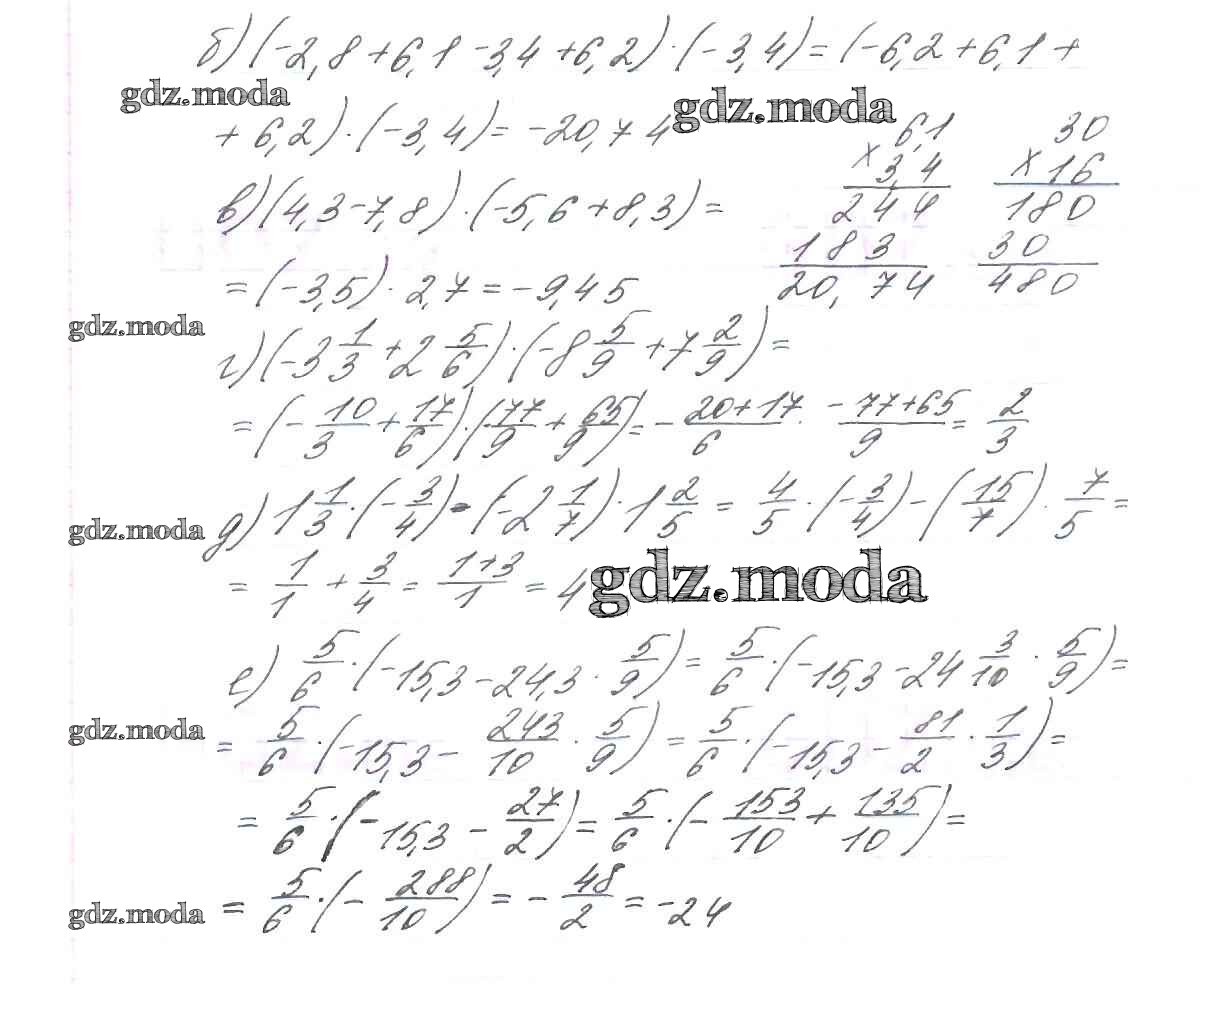 б) (-2,8 + 6,1 - 3,4 + 6,2) · (-3,4) = (-6,2 + 6,1 +
gdz.moda
gdz.moda
+ 6,2) · (-3,4) = -20,74
6,1
× 3,4
244
183
20,74
30
× 16
180
30
480
в) (4,3 - 7,8) · (-5,6 + 8,3) =
= (-3,5) · 2,7 = -9,45
gdz.moda
г) (-3 1/3 + 2 5/6) · (-8 5/9 + 7 2/9) =
= (- 10/3 + 17/6) · (77/9 + 65/9) = - 20+17/6 · -77+65/9 = 2/3
gdz.moda
д) 1 1/3 · (- 3/4) - (-2 1/7) · 1 2/5 = 4/5 · (- 3/4) - (15/7) · 7/5 =
= 1/1 + 3/4 = 1+3/1 = 4
gdz.moda
е) 5/6 · (-15,3 - 24,3 · 5/9) = 5/6 · (-15,3 - 24 3/10 · 5/9) =
gdz.moda
= 5/6 · (-15,3 - 243/10 · 5/9) = 5/6 · (-15,3 - 81/2 · 1/3) =
= 5/6 · (-15,3 - 27/2) = 5/6 · (- 153/10 + 135/10) =
gdz.moda
= 5/6 · (- 288/10) = - 48/2 = -24